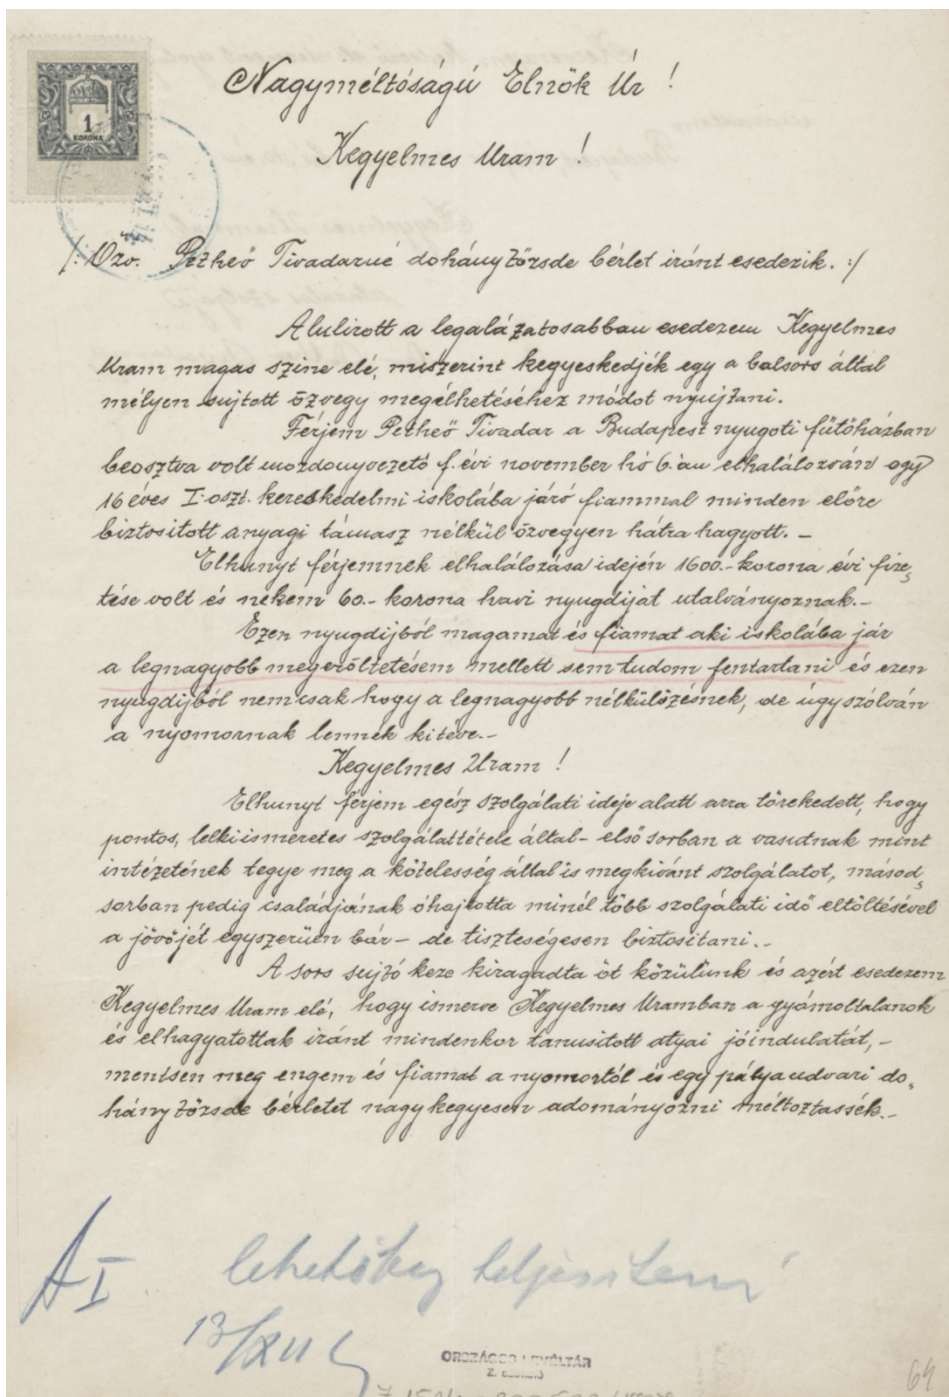 1
KORONA
Nagyméltóságú Elnök Úr!
Kegyelmes Uram!
/: Özv. Petheő Tivadarné dohánytőzsde bérlet iránt esedezik. :/
Alulirott a legalázatosabban esedezem Kegyelmes
Uram magas szine elé, miszerint kegyeskedjék egy a balsors által
mélyen sujtott özvegy megélhetéséhez módot nyujtani.
Férjem Petheő Tivadar a Budapest nyugoti fűtőházban
beosztva volt mozdonyvezető f. évi november hó 6.-án elhalálozván egy
16 éves I. oszt. kereskedelmi iskolába járó fiammal minden előre
biztositott anyagi támasz nélkül özvegyen hátra hagyott. –
Elhunyt férjemnek elhalálozása idején 1600.- korona évi fize-
tése volt és nékem 60.- korona havi nyugdijat utalványoznak. –
Ezen nyugdijból magamat és fiamat aki iskolába jár
a legnagyobb megerőltetésem mellett sem tudom fentartani és ezen
nyugdijból nemcsak hogy a legnagyobb nélkülözésnek, de úgyszólván
a nyomornak lennék kitéve. –
Kegyelmes Uram!
Elhunyt férjem egész szolgálati ideje alatt arra törekedett, hogy
pontos, lelkiismeretes szolgálattétele által – első sorban a vasutnak mint
intézetének tegye meg a kötelesség által is megkivánt szolgálatot, másod-
sorban pedig családjának óhajtotta minél több szolgálati idő eltöltésével
a jövőjét egyszerüen bár – de tisztességesen biztositani. –
A sors sujtó keze kiragadta őt közülünk és azért esedezem
Kegyelmes Uram elé, hogy ismerve Kegyelmes Uramban a gyámoltalanok
és elhagyatottak iránt mindenkor tanusitott atyai jóindulatát, –
mentsen meg engem és fiamat a nyomortól és egy pályaudvari do-
hánytőzsde bérletet nagykegyesen adományozni méltóztassék. –
A I. lehetőleg teljesiteni
13/XII
ORSZÁGOS LEVÉLTÁR
64